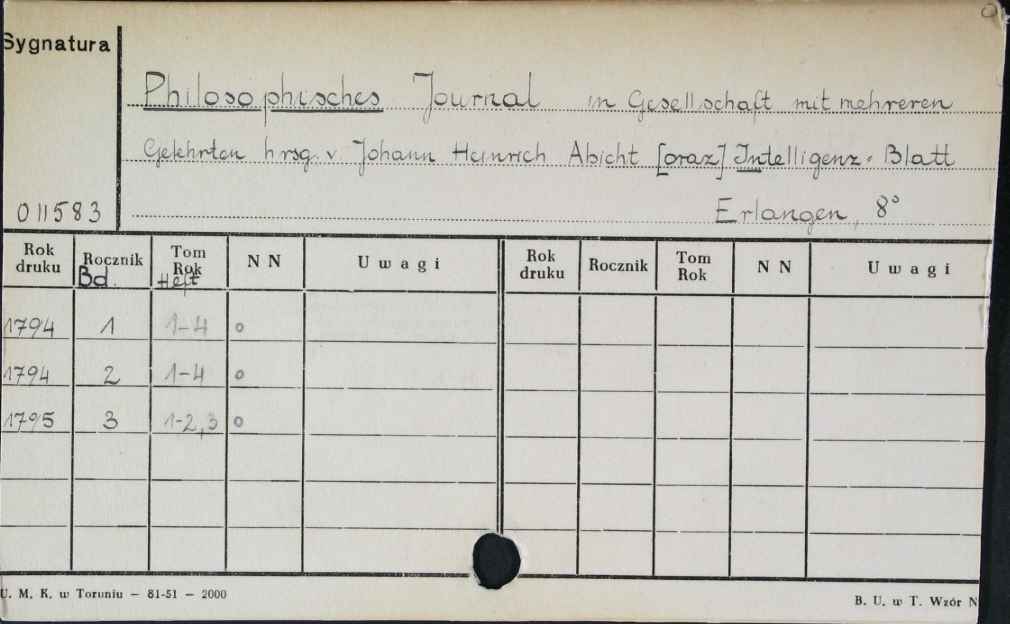 Sygnatura
Philosophisches Journal in Gesellschaft mit mehreren
Gelehrten hrsg. v Johann Heinrich Abicht [oraz] Intelligenz-Blatt
011583 Erlangen, 8°
Rok druku Rocznik Bd. Tom Rok Heft N N Uwagi Rok druku Rocznik Tom Rok N N Uwagi
1794 1 1-4 o
1794 2 1-4 o
1795 3 1-2,3 o
U. M. K. w Toruniu — 81-51 — 2000 B. U. w T. Wzór N